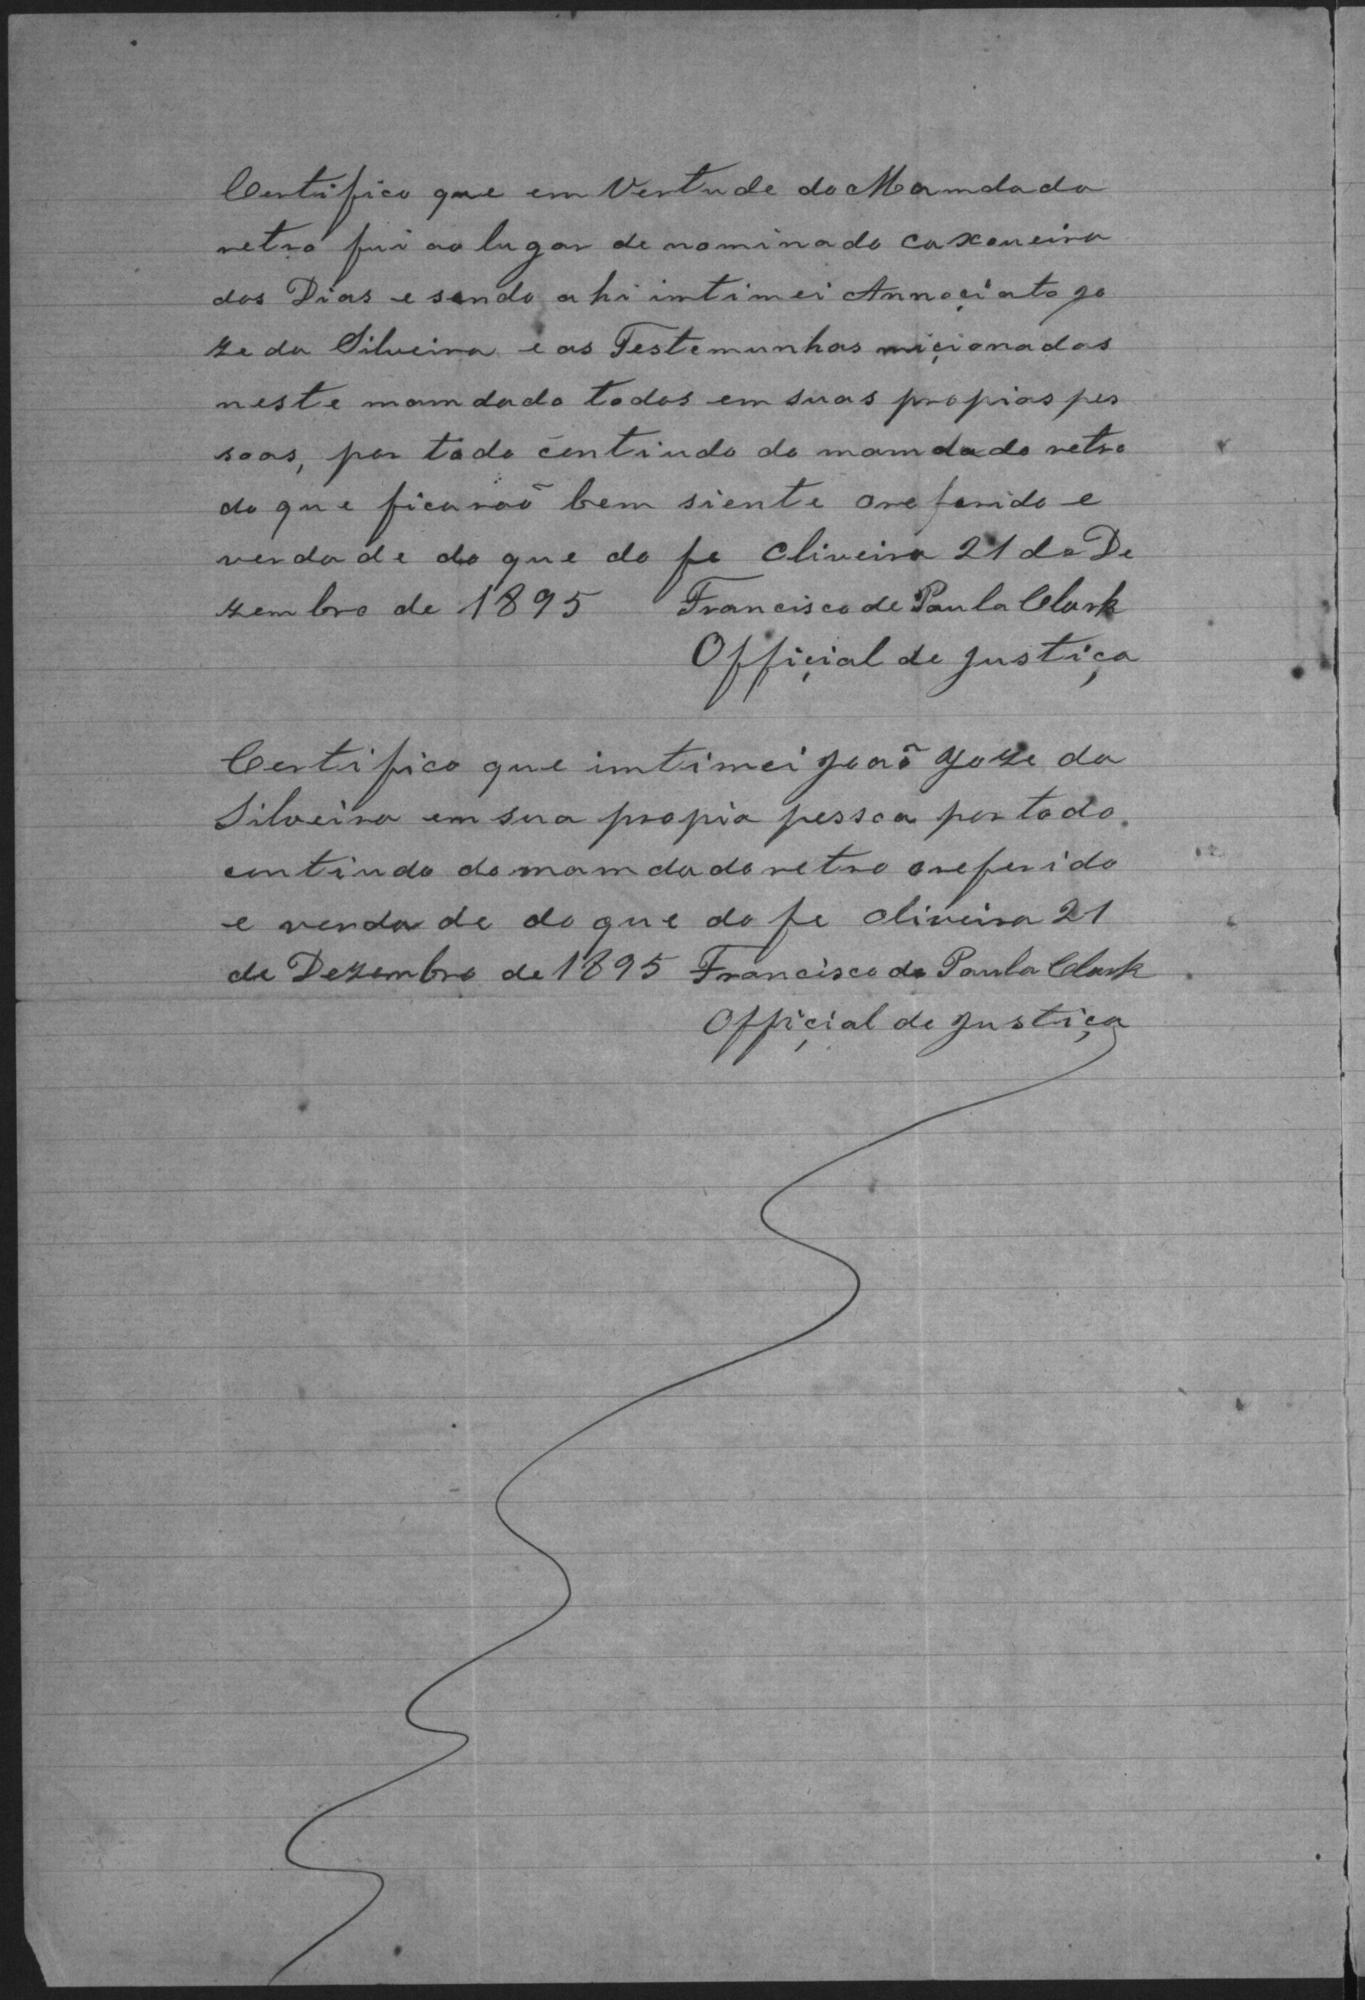 Certifico que em Vertude do Mamdado
retro fui ao lugar de nominado caxoueira
dos Dias e sendo ahi imtimei Annoçiato Jo
ze da Silveira e as Testemunhas miçionadas
neste mamdado todos em suas propias pes
soas, por todo contiudo do mamdado retro
do que ficaraõ bem siente oreferido e
verdade do que do fe Oliveira 21 de De
zembro de 1895 Francisco de Paula Clark
Offiçial de Justiça
Certifico que imtimei Joaõ Joze da
Silveira em sua propia pessoa por todo
contiudo do mamdado retro oreferido
e verdade do que do fe Oliveira 21
de Dezembro de 1895 Francisco de Paula Clark
Offiçial de Justiça